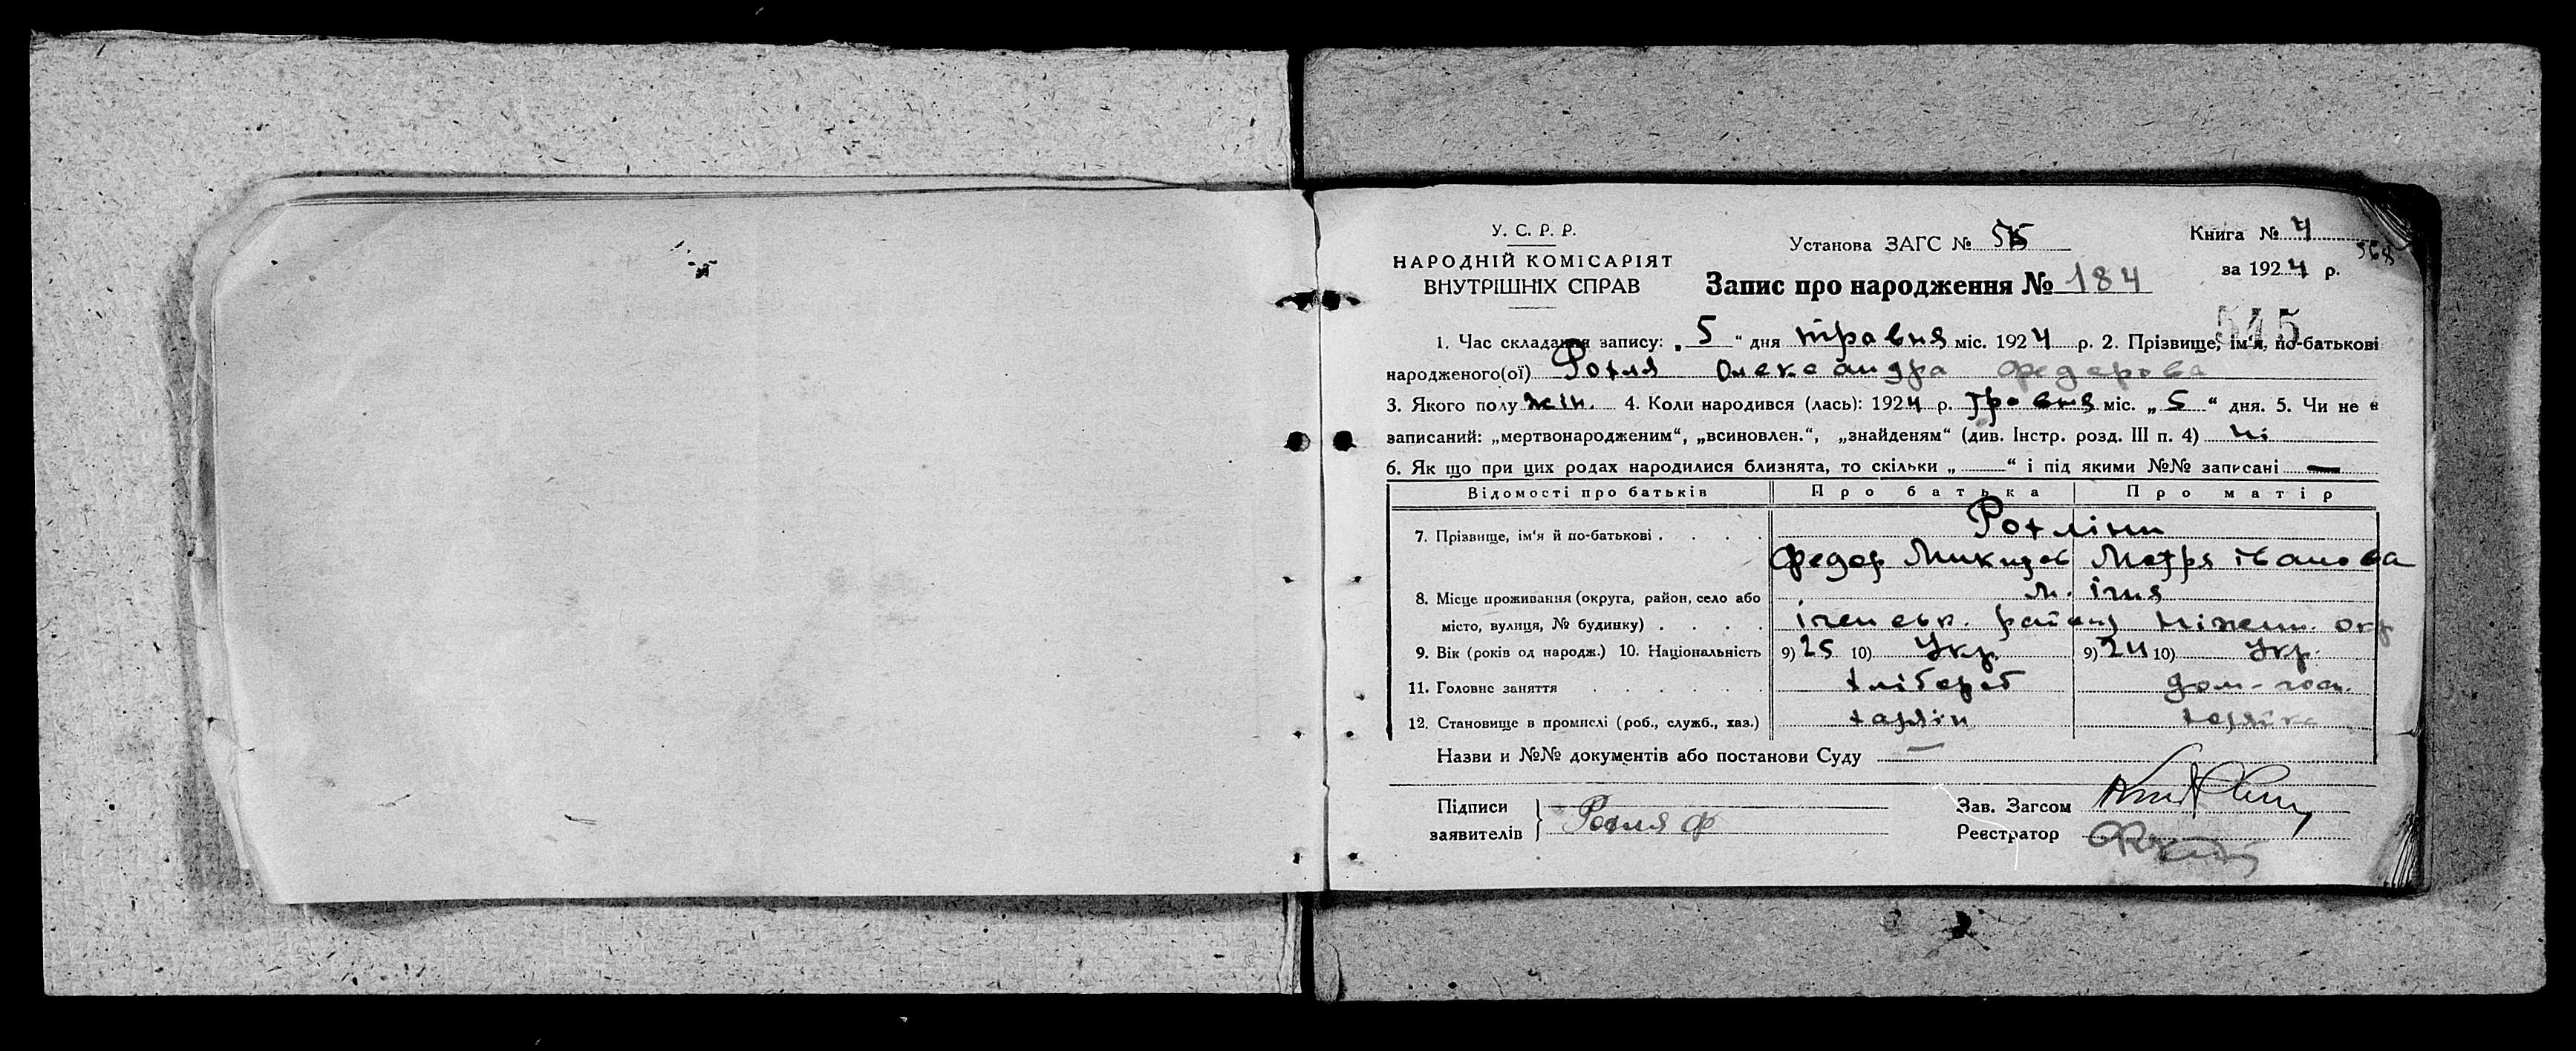 У. С. Р. Р.
НАРОДНІЙ КОМІСАРІЯТ
ВНУТРІШНІХ СПРАВ
Установа ЗАГС №
Книга № 4
568
за 1924 р.
Запис про народження № 184
545
1. Час складання запису: „5“ дня травня міс. 1924 р. 2. Прізвище, ім'я, по-батькові
народженого(ої) Рохля Олександра Федорова
3. Якого полу жін. 4. Коли народився (лась): 1924 р. травня міс. „5“ дня. 5. Чи не є
записаний: „мертвонародженим“, „всиновлен.“, „знайденям“ (див. Інстр. розд. III п. 4) ні
6. Як що при цих родах народилися близнята, то скільки „ “ і під якими №№ записані —
Відомості про батьків Про батька Про матір
Рохліни
7. Прізвище, ім'я й по-батькові . . . .
Федор Микитов Мотря іванова
8. Місце проживання (округа, район, село або м. ічня
місто, вулиця, № будинку) . . . . іченськ. району Ніженш. окр
9. Вік (років од народж.) 10. Національність 9) 25 10) Укр. 9) 24 10) Укр.
11. Головне заняття . . . . . . хлібороб дом-госп.
12. Становище в промислі (роб., служб., хаз.) хазяїн хазяйка
Назви и №№ документів або постанови Суду —
Підписи
заявителів } Рохля Ф
Зав. Загсом
Реєстратор